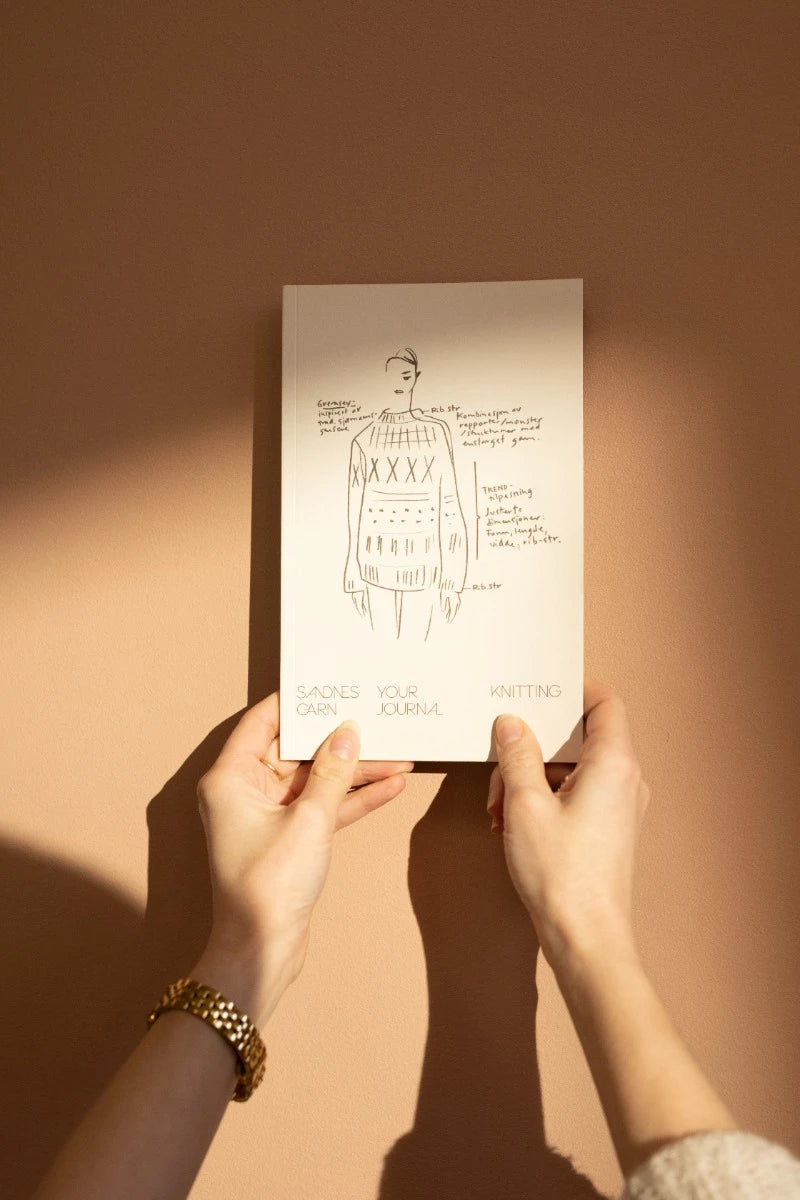 Guernsey-
inspirert av
trad. sjømanns-
gensere
Rib.str
Kombinasjon av
rapporter/mønster
/strukturer med
ensfarget garn.
TREND-
tilpasning
Justerte
dimensjoner:
Form, lengde,
vidde, rib-str.
Rib.str
SANDNES
GARN
YOUR
JOURNAL
KNITTING